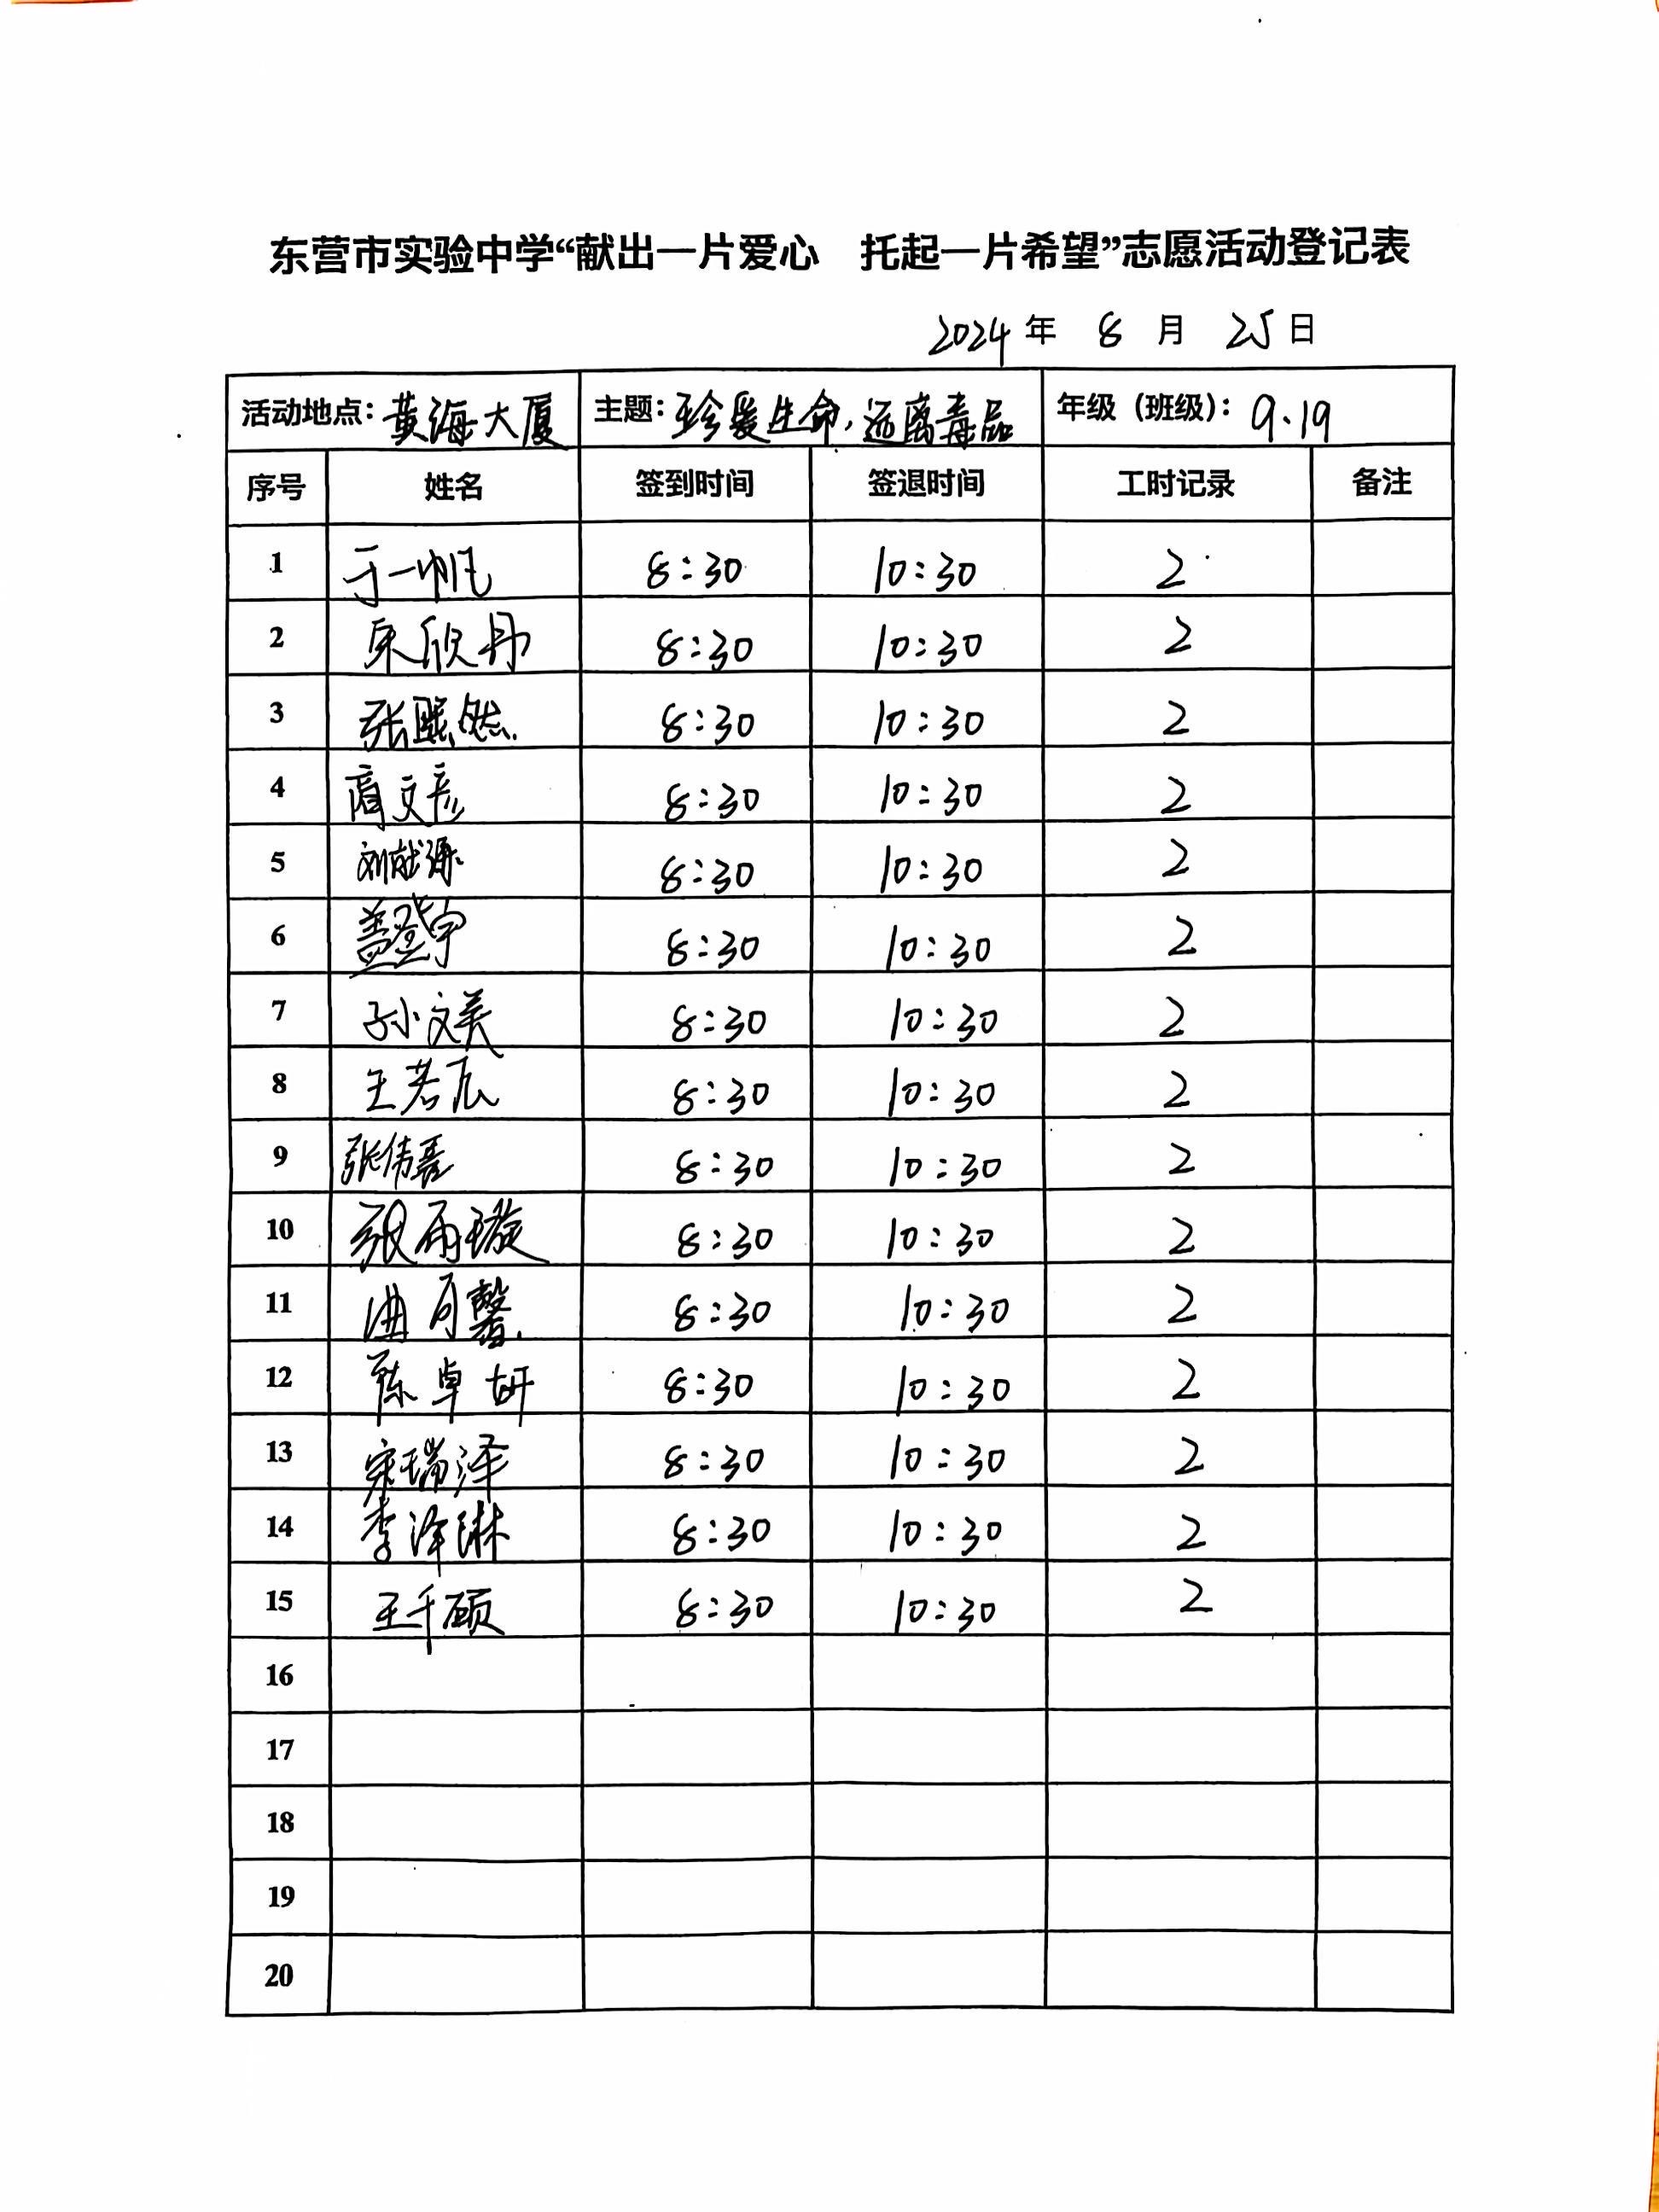 东营市实验中学“献出一片爱心 托起一片希望”志愿活动登记表
2024年 8 月 25日
活动地点：黄海大厦 主题：珍爱生命，远离毒品 年级（班级）：9.19
序号 姓名 签到时间 签退时间 工时记录 备注
1 于一帆 8:30 10:30 2
2 欣丹 8:30 10:30 2
3 张熙然 8:30 10:30 2
4 商文彦 8:30 10:30 2
5 刘献源 8:30 10:30 2
6 盖登宇 8:30 10:30 2
7 孙文美 8:30 10:30 2
8 王若辰 8:30 10:30 2
9 张倩 8:30 10:30 2
10 张雨璇 8:30 10:30 2
11 曲可馨 8:30 10:30 2
12 陈卓妍 8:30 10:30 2
13 宋瑞泽 8:30 10:30 2
14 李泽琳 8:30 10:30 2
15 王千硕 8:30 10:30 2
16
17
18
19
20